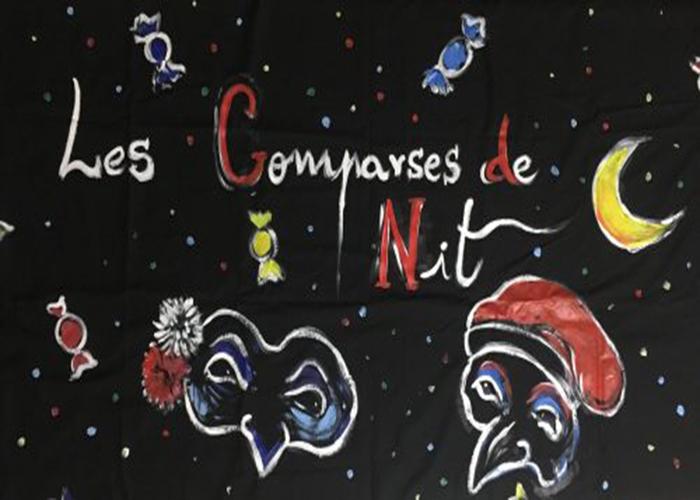 Les Comparses de
Nit